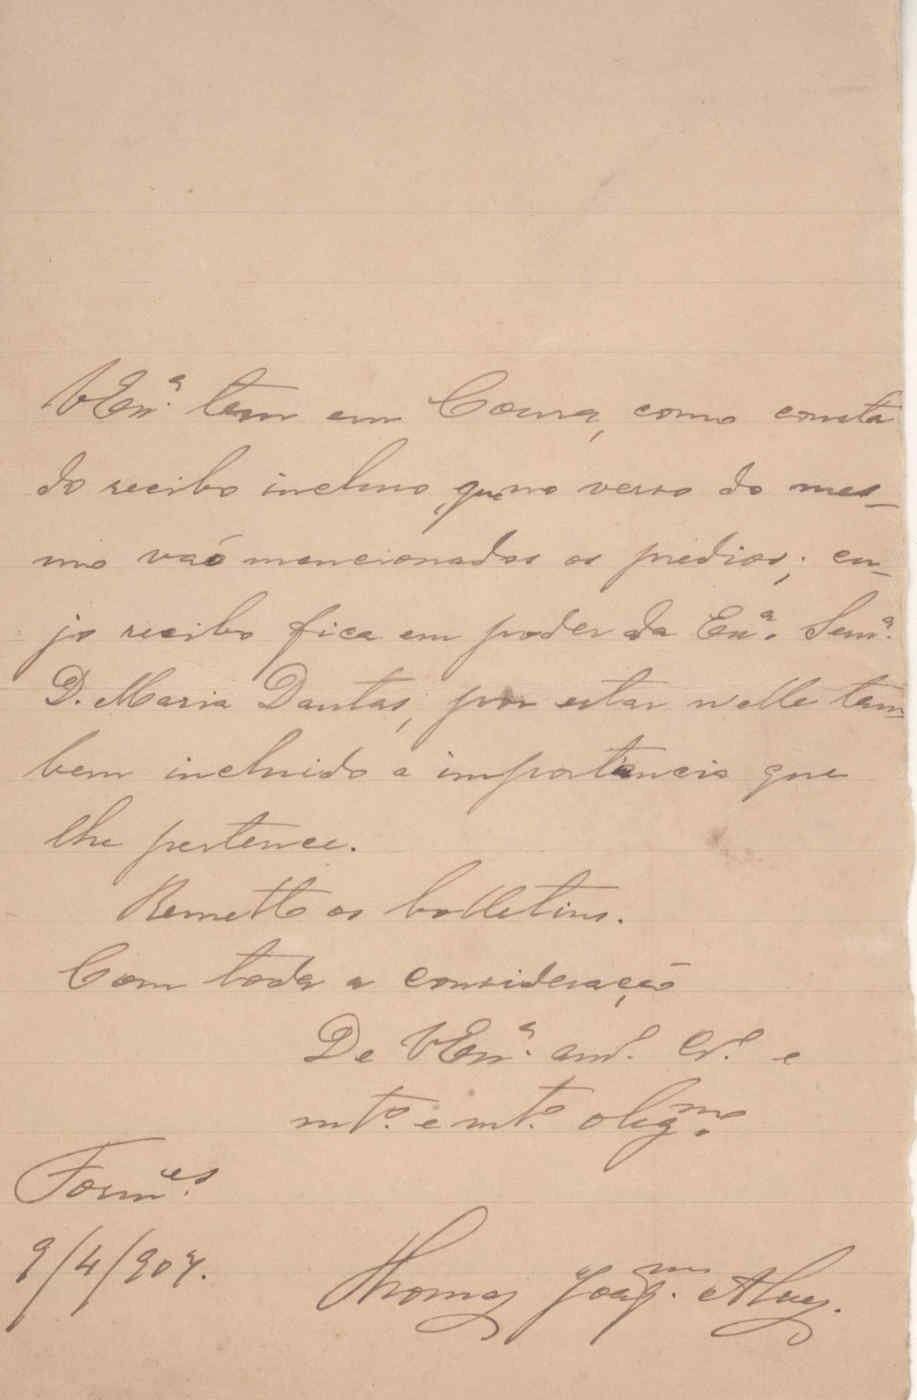 VEx.ª tem em Coura, como consta
do recibo incluso, que no verso do mes-
mo vaõ mencionados os predios; cu-
jo recibo fica em poder da Ex.ª Senr.ª
D. Maria Dantas, por estar n'elle tam
bem incluido a importancia que
lhe pertence.
Remetto os bolletins.
Com toda a consideração
De VEx.ª am.º Cr.º e
mt.º e mt.º obg.mo
9/4/907.
Thomaz Joaq.m Alves.